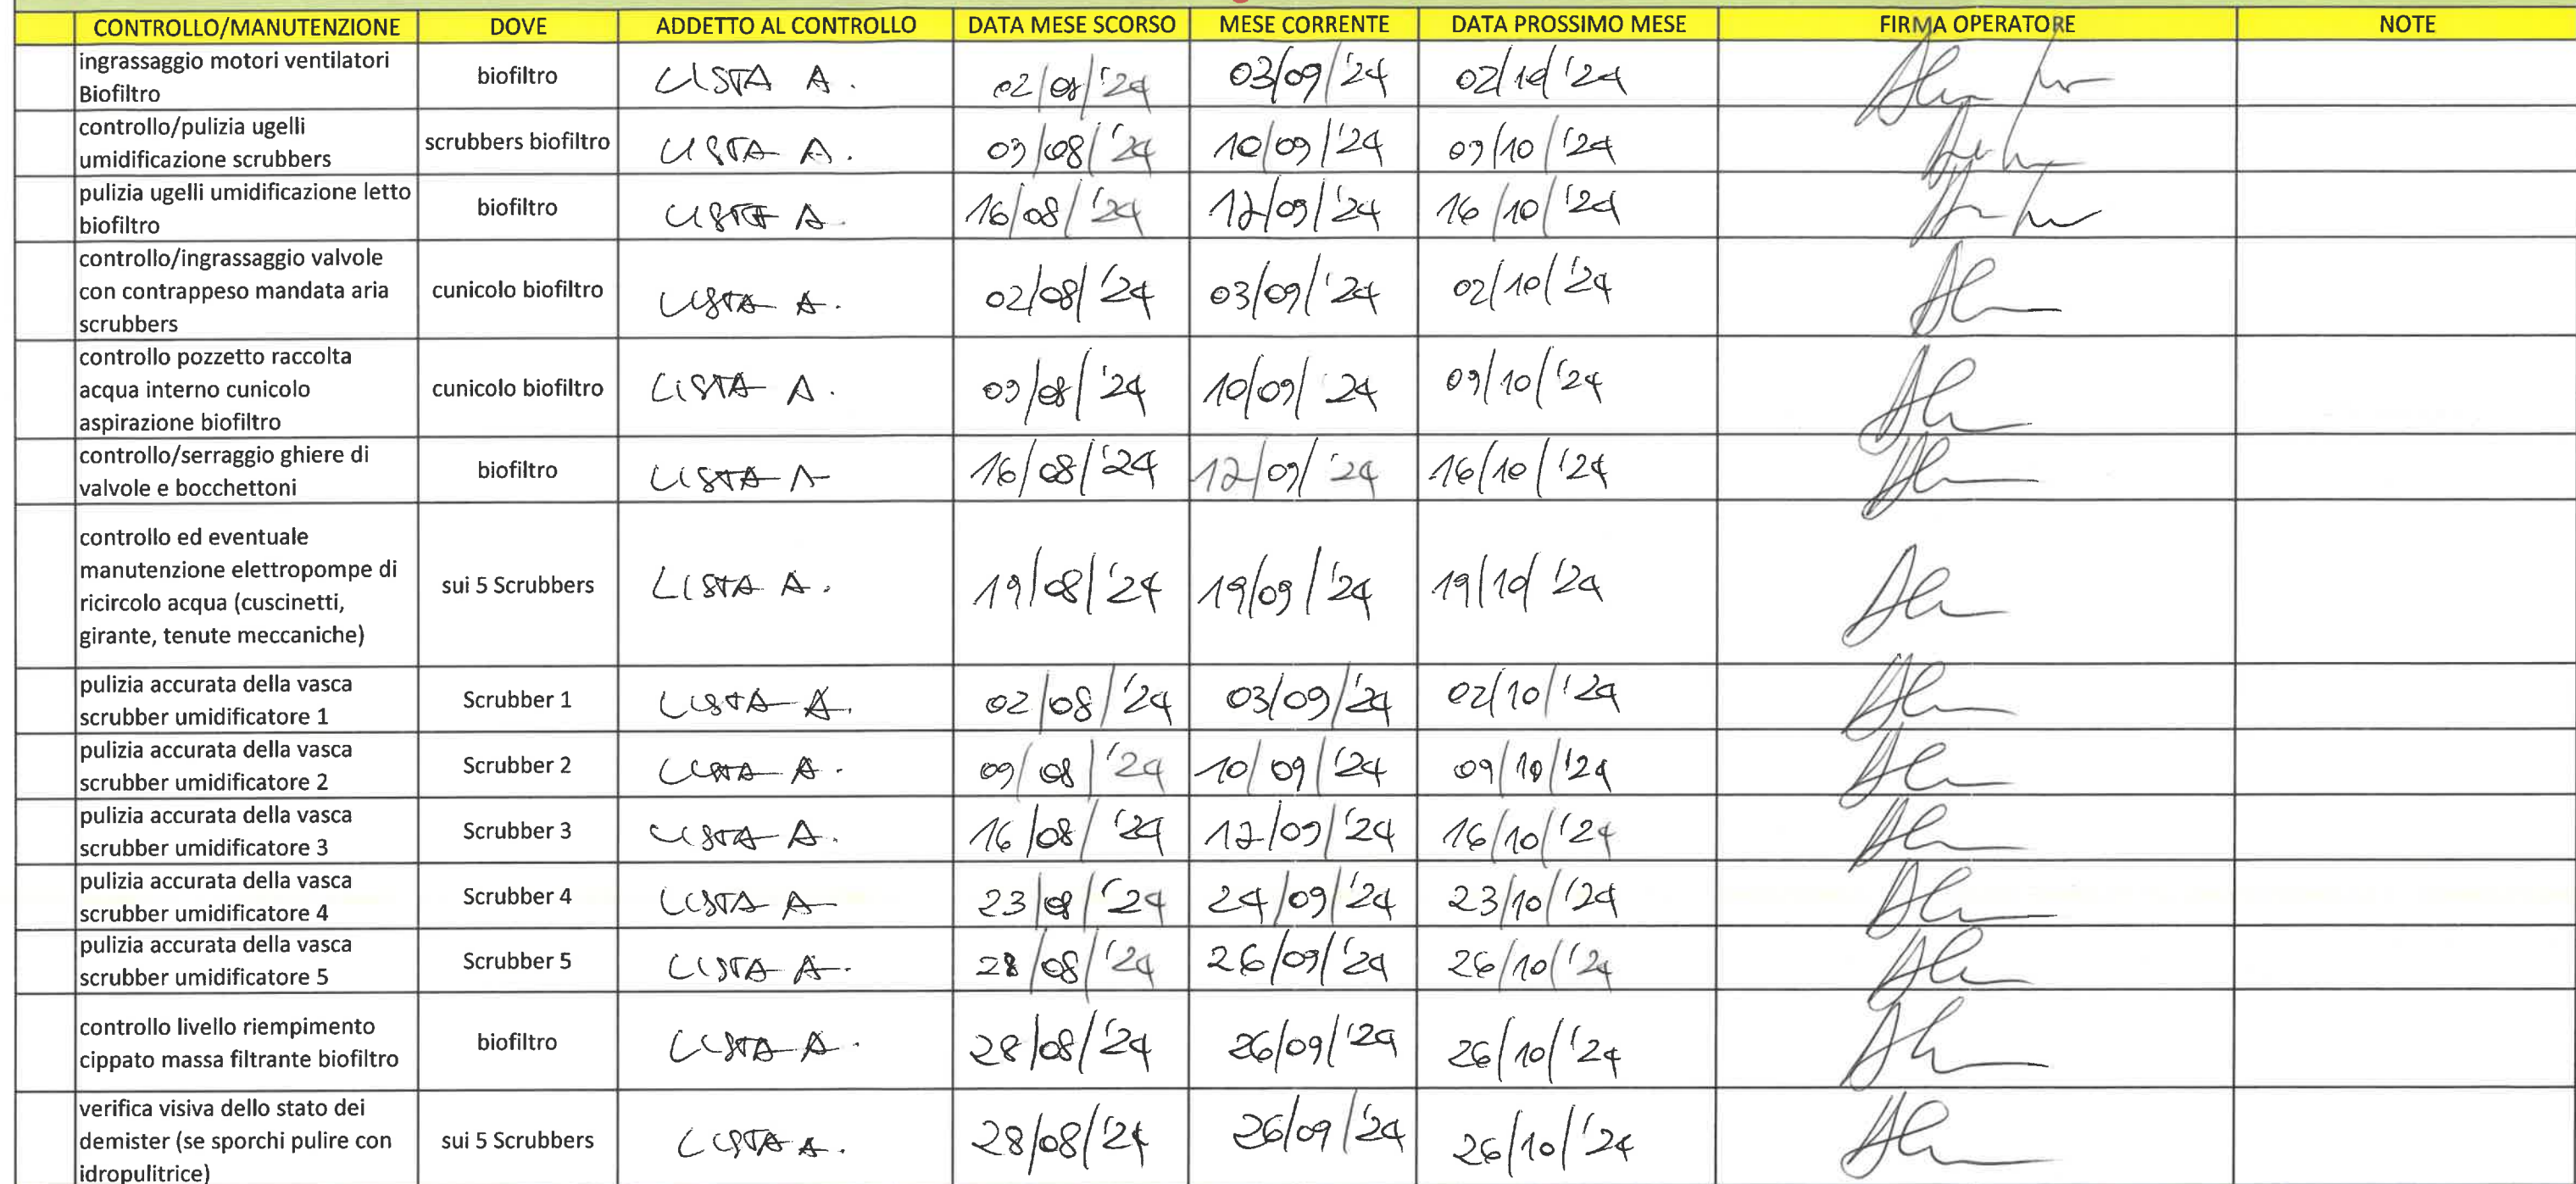 CONTROLLO/MANUTENZIONE DOVE ADDETTO AL CONTROLLO DATA MESE SCORSO MESE CORRENTE DATA PROSSIMO MESE FIRMA OPERATORE NOTE
ingrassaggio motori ventilatori
Biofiltro
biofiltro LISTA A. 02/08/'24 03/09/'24 02/10/'24
controllo/pulizia ugelli
umidificazione scrubbers
scrubbers biofiltro LISTA A. 09/08/'24 10/09/'24 09/10/'24
pulizia ugelli umidificazione letto
biofiltro
biofiltro LISTA A. 16/08/'24 17/09/'24 16/10/'24
controllo/ingrassaggio valvole
con contrappeso mandata aria
scrubbers
cunicolo biofiltro LISTA A. 02/08/'24 03/09/'24 02/10/'24
controllo pozzetto raccolta
acqua interno cunicolo
aspirazione biofiltro
cunicolo biofiltro LISTA A. 09/08/'24 10/09/'24 09/10/'24
controllo/serraggio ghiere di
valvole e bocchettoni
biofiltro LISTA A 16/08/'24 17/09/'24 16/10/'24
controllo ed eventuale
manutenzione elettropompe di
ricircolo acqua (cuscinetti,
girante, tenute meccaniche)
sui 5 Scrubbers LISTA A. 19/08/'24 19/09/'24 19/10/'24
pulizia accurata della vasca
scrubber umidificatore 1
Scrubber 1 LISTA A. 02/08/'24 03/09/'24 02/10/'24
pulizia accurata della vasca
scrubber umidificatore 2
Scrubber 2 LISTA A. 09/08/'24 10/09/'24 09/10/'24
pulizia accurata della vasca
scrubber umidificatore 3
Scrubber 3 LISTA A. 16/08/'24 17/09/'24 16/10/'24
pulizia accurata della vasca
scrubber umidificatore 4
Scrubber 4 LISTA A 23/08/'24 24/09/'24 23/10/'24
pulizia accurata della vasca
scrubber umidificatore 5
Scrubber 5 LISTA A. 28/08/'24 26/09/'24 26/10/'24
controllo livello riempimento
cippato massa filtrante biofiltro
biofiltro LISTA A. 28/08/'24 26/09/'24 26/10/'24
verifica visiva dello stato dei
demister (se sporchi pulire con
idropulitrice)
sui 5 Scrubbers LISTA A. 28/08/'24 26/09/'24 26/10/'24